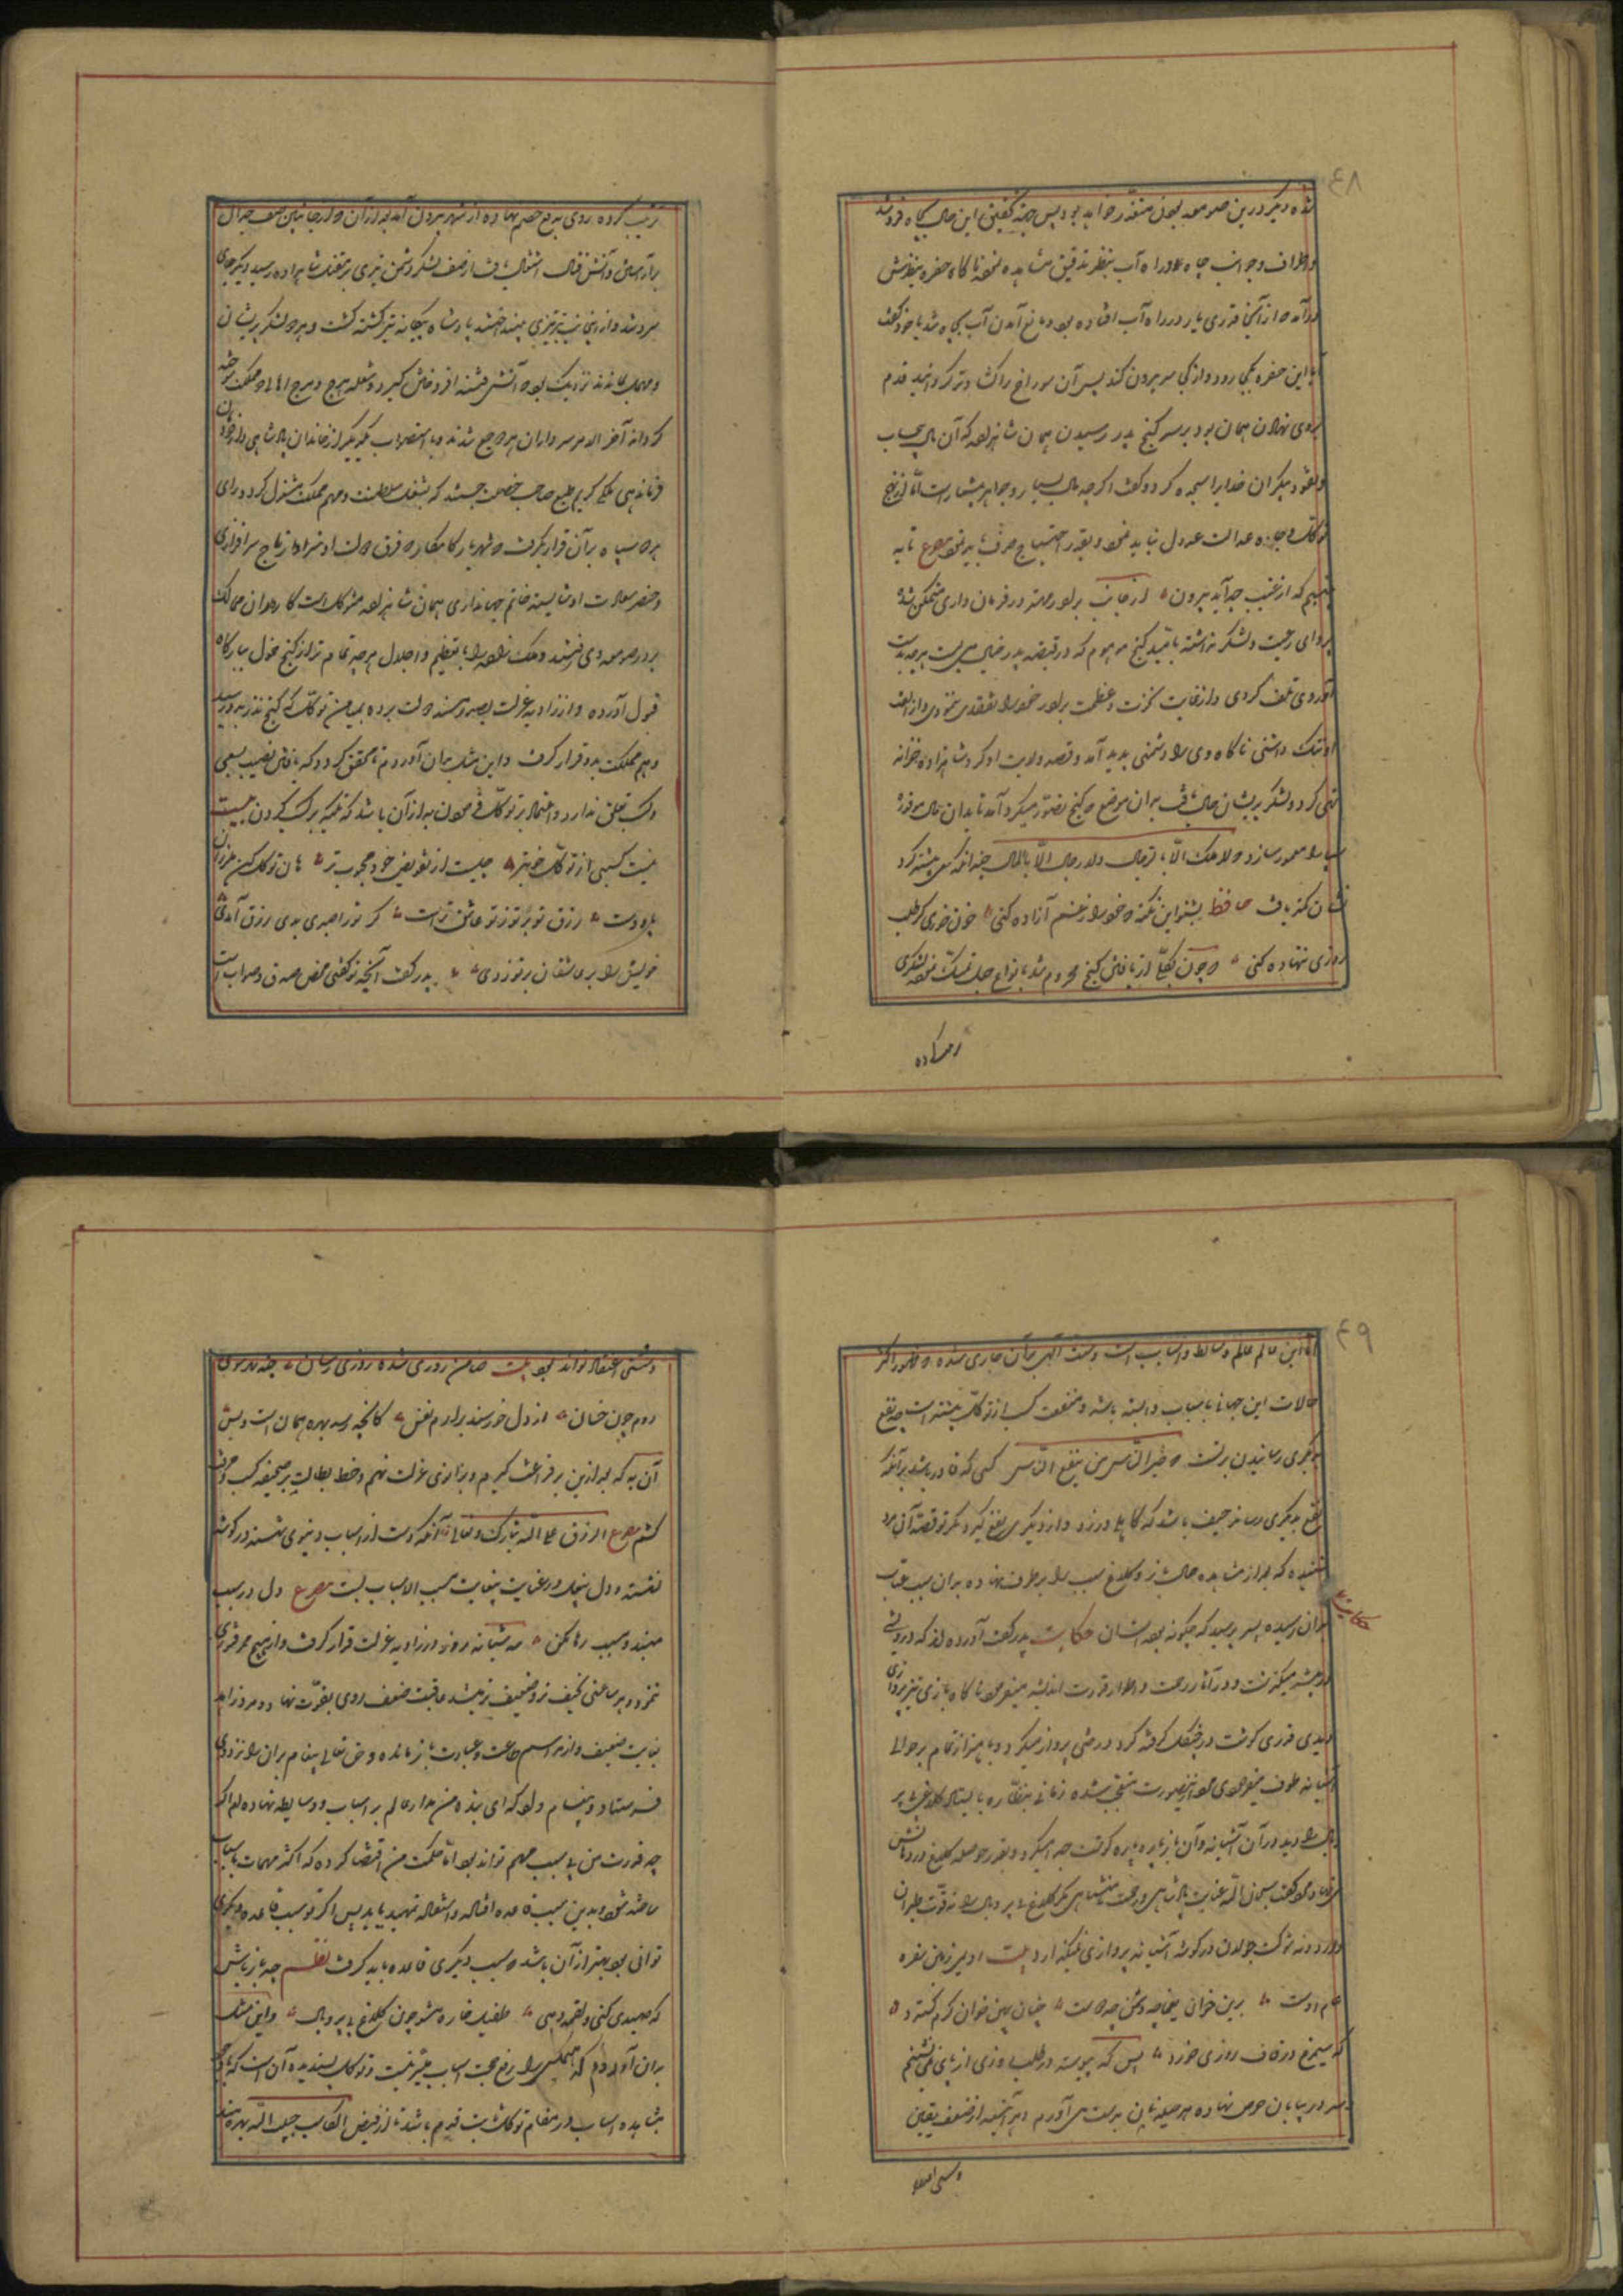 ٤٨
شده دیگر درین صومعه بودن متعذر خواهد بود پس جهت تفتیش این حال بچاه فرو شد
و اطراف و جوانب چاه و راه آب بنظر تدقیق مشاهده نمود ناگاه حفره بنظرش
درآمد که از آنجا قدری یار در راه آب افتاده بود و مانع آمدن آب بچاه شد با خود گفت
آیا این حفره بکجا رود و از کجا سر بیرون کند پس آن سوراخ را گشاده ترکرد انید قدم
دروی نهادن همان بود و بر سر گنج پدر رسیدن همان شاهزاده که آن مال بیحساب
و نقود بیکران خدایرا سجده کرد و گفت اگرچه مال بسیار و جواهر بیشمار است اما از نهج
توکل و جاده عدالت عدول نباید نمود و بقدر احتیاج صرف باید نمود مصرع تا به
بینیم که از غیب چه آید بیرون از جانب برادر مهتر در فرمان داری متمکن شد
پروای رعیت و لشکر نداشته بامید گنج موهوم که در قصر پدر خیال می بست هرچه بدست
آوردی تلف کردی و از غایت نخوت و عظمت برادر خود را تفقد نمی نمودی و از الفت
او ننگ داشتی ناگاه ویرا دشمنی پدید آمد و قصد ولایت او کرد شاهزاده خزانه
تهی کرده و لشکر پریشان حال یافت بران موضع که گنج تصور میکرد آمد تا بدان مال موفور
سپاه را معمور سازد که لا ملک الا بالرجال و لا رجال الا بالمال چندانکه سعی بیشتر کرد
نشان کمتر یافت حافظ بشنو این نکته که خود را ز غم آزاده کنی خون خوری گر طلب
روزی ننهاده کنی و چون بکلی از یافتن گنج محروم شد بانواع حیل تمسک نموده لشکری
ترتیب کرده
ترتیب کرده روی بدفع خصم نهاده از شهر بیرون آمد بعد از آن که از جانبین صف جدال
برآراستند و آتش قتال اشتعال یافت از صف لشکر دشمن تیری بر مقتل شاهزاده رسید و بر جای
سرد شد و از ینجانب نیز تیری بینداختند پادشاه بیگانه نیز کشته گشت و هر دو لشکر پریشان
و مهمل بماندند نزدیک بود که آتش فتنه افروختن گیرد و بشعله هرج و مرج اهالی هر دو مملکت سوخته
گردند آخر الامر سرداران هر دو جمع شدند و باستصواب یکدیگر از خاندان پادشاهی و دودمان
فرماندهی ملکی کریم طبع صاحب خصلت جستند که بشغل سلطنت و مهم مملکت مشغول گردد رای
هر دو سپاه بر آن قرار گرفت که شهریار کامکار که فرق دولت او سزاوار تاج سرافرازی
و خنصر سعادت او شایسته خاتم جهانداری همان شاهزاده متوکل است کار داران ممالک
بدر صومعه وی رفتند و ملک زاده را بتعظیم و اجلال هرچه تمامتر از کنج خمول ببارگاه
قبول آورده و از زاویه عزلت بصدر مسند دولت برده بمیامن توکل که گنج پدر بدو رسید
و هم مملکت برو قرار گرفت و این مثل بران آوردم تا محقق گردد که یافتن نصیب بسعی
و کسب تعلق ندارد و اعتماد بر توکل فرمودن به از آن باشد که تکیه بر کسب کردن بیت
نیست کسبی از توکل خوبتر چیست از تفویض خود محبوب تر هان توکل کن ملرزان
پا و دست رزق تو بر تو ز تو عاشق تر است گر تو را صبری بدی رزق آمدی
خویش را بر عاشقان برتو زدی پدر گفت آنچه تو گفتی محض صدق و صواب است
٤٩
اما این عالم عالم وسایط و اسباب است و سنت الهی بر آن جاری شده که ظهور اکثر
حالات این جهانی باسباب وابسته باشد و منفعت کسب از توکل بیشتر است چه نفع
بدیگری رسانیدن برتست که خیر الناس من ینفع الناس کسی که قادر باشد بر آنکه
نفع بدیگری رساند حیف باشد که کاهلی ورزد و از دیگری نفع گیرد مگر تو قصه آن مرد
نشنیده که بعد از مشاهده حال باز و کلاغ سبب را بر طرف نهاده بدان سبب عتاب
بران رسیده پسر پرسید که چگونه بوده است آن حکایت پدر گفت آورده اند که درویشی
حکایت
در بیشه میگذشت و در آثار رحمت و اطوار قدرت اندیشه مینمود ناگاه بازی تیز پروازی
دید قدری گوشت در چنگال گرفته گرد درختی پرواز میکرد و باهتزاز تمام بر حوالی
آشیانه طوف مینمود مرد ازینصورت متعجب شده زمانی بنظاره بایستاد کلاغ بی پر
و بال را دید در آن آشیانه و آن باز پاره پاره گوشت جدا میکرد و بقدر حوصله کلاغ در دهانش
مینهاد مرد گفت سبحان الله عنایت پادشاهی و رحمت نامتناهی نگر کلاغی بی پر و بال را نه قوت طیران
دارد و نه شوکت جولان در گوشه آشیانه بی روزی نمیگذارد بیت ادیم زمین سفره
عام اوست برین خوان یغما چه دشمن چه دوست چنان پهن خوان کرم گسترد
که سیمرغ در قاف روزی خورد پس که پیوسته در طلب روزی از پای نمی نشینم
و سر در بیابان حرص نهاده بهر حیله نان بدست می آورم هر آینه از ضعف یقین
و سستی اعتقاد
و سستی اعتقاد تواند بود بیت ضامن روزی شده روزی رسان چند بهر سوی
دوم چون خسان از دل خرسند برارم نفس کانچه رسد بهره همان است و بس
آن به که بعد ازین سر فراغت گیرم و بزانوی عزلت نهم و خط بطالت بر صحیفه کسب و حرفت
کشم مصرع الرزق علی الله تبارک و تعالی آنگه دست از اسباب دنیوی شسته در گوشه
نشست و دل بیغل در عنایت بیغایت مسبب الاسباب بست مصرع دل در سبب
مبند و مسبب رها مکن سه شبانه روز در زاویه عزلت قرار گرفت و از هیچ ممر فتوحی
ننمود و هر ساعتی نحیف تر و ضعیف تر میشد عاقبت ضعف روی بقوت نهاد و مرد زاهد
بغایت ضعیف و از مراسم طاعت و عبادت بازمانده و حق تعالی پیغام بران را نزد وی
فرستاد و پیغام داد که ای بنده من مدار عالم بر اسباب و وسایط نهاده ام اگر
چه قدرت من بی سبب مهم تواند بود اما حکمت من اقتضا کرده که اکثر مهمات باسباب
ساخته شود و بدین سبب قاعده افاده و استفاده تمهید یابد پس اگر تو سبب فایده دیگری
توانی بود بهتر از آن باشد که بسبب دیگری فایده باید گرفت نظم چو باز باش
که صیدی کنی و لقمه دهی طفیل خواره مشو چون کلاغ بی پر و بال و این مثل
بران آوردم که همه کس را رفع حجب اسباب میسر نیست و توکل پسندیده آن است که با وجود
مشاهده اسباب در مقام توکل ثابت قدم باشد تا از فیض الکاسب حبیب الله بهره مند